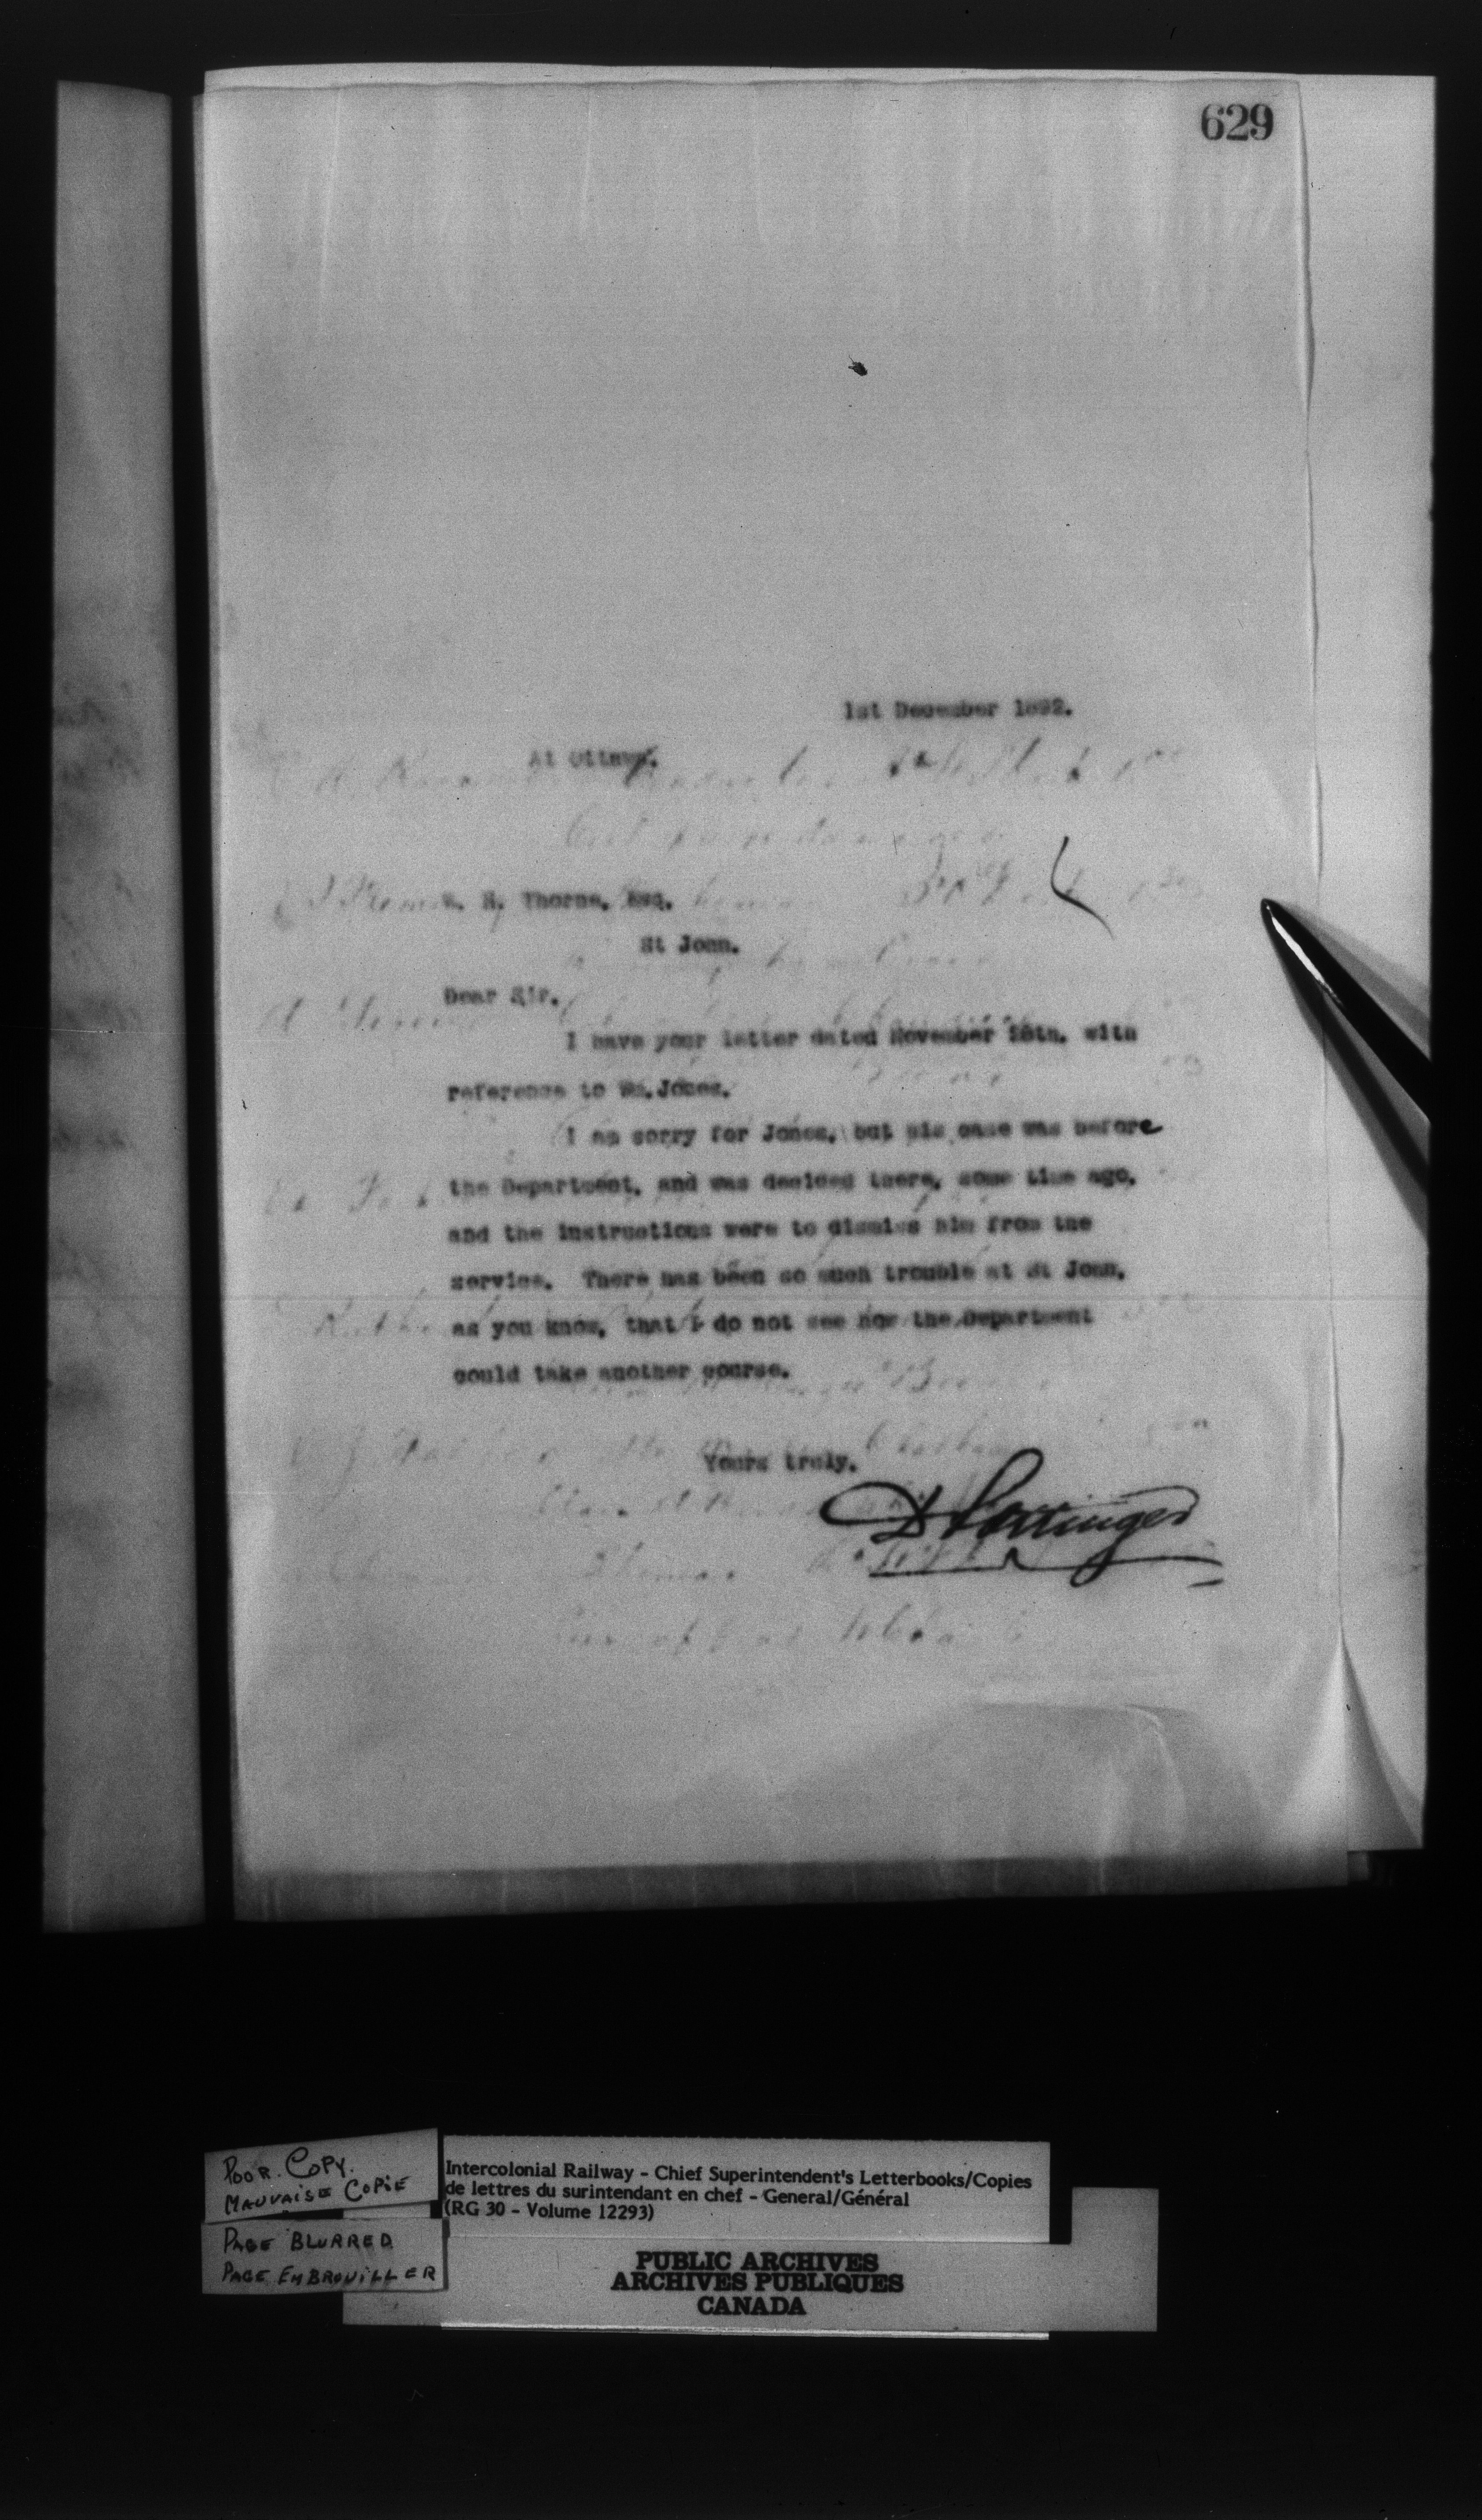 629
1st December 1892.
At Ottawa.
W. H. Thorne, Esq.
St John.
Dear Sir.
I have your letter dated November 28th. with
reference to Wm. Jones.
I am sorry for Jones, but his case was before
the Department, and was decided there, some time ago,
and the instructions were to dismiss him from the
service. There has been so much trouble at St John,
as you know, that I do not see how the Department
could take another course.
Yours truly.
D Pottinger
POOR. COPY.
MAUVAISE COPIE
PAGE BLURRED
PAGE EMBROUILLER
Intercolonial Railway - Chief Superintendent's Letterbooks/Copies
de lettres du surintendant en chef - General/Général
(RG 30 - Volume 12293)
PUBLIC ARCHIVES
ARCHIVES PUBLIQUES
CANADA